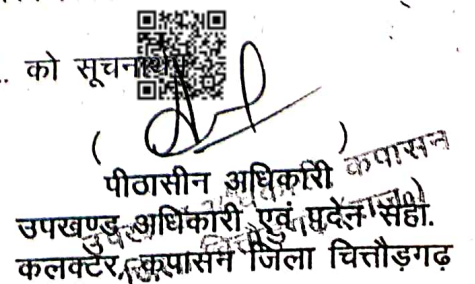 .. को सूचनार्थ
(                    )
पीठासीन अधिकारी
उपखण्ड अधिकारी एवं पदेन सहा.
कलक्टर, कपासन जिला चित्तौड़गढ़
कपासन